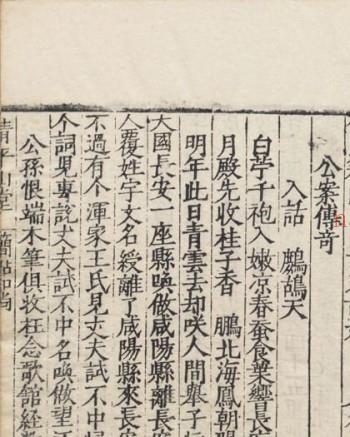 公案傳奇
入話 鷓鴣天
白苧千袍入嫩凉春蚕食葉響長
月殿先收桂子香 鵬北海鳳朝
明年此日青雲去却咲人間舉子
大國長安一座縣喚做咸陽縣離長
人覆姓宇文名綬離了咸陽縣來長安
不過有个渾家王氏見丈夫試不中
个詞兒專說丈夫試不中名喚做望江
公孫恨端木筆俱收枉念歌館經
清平山堂